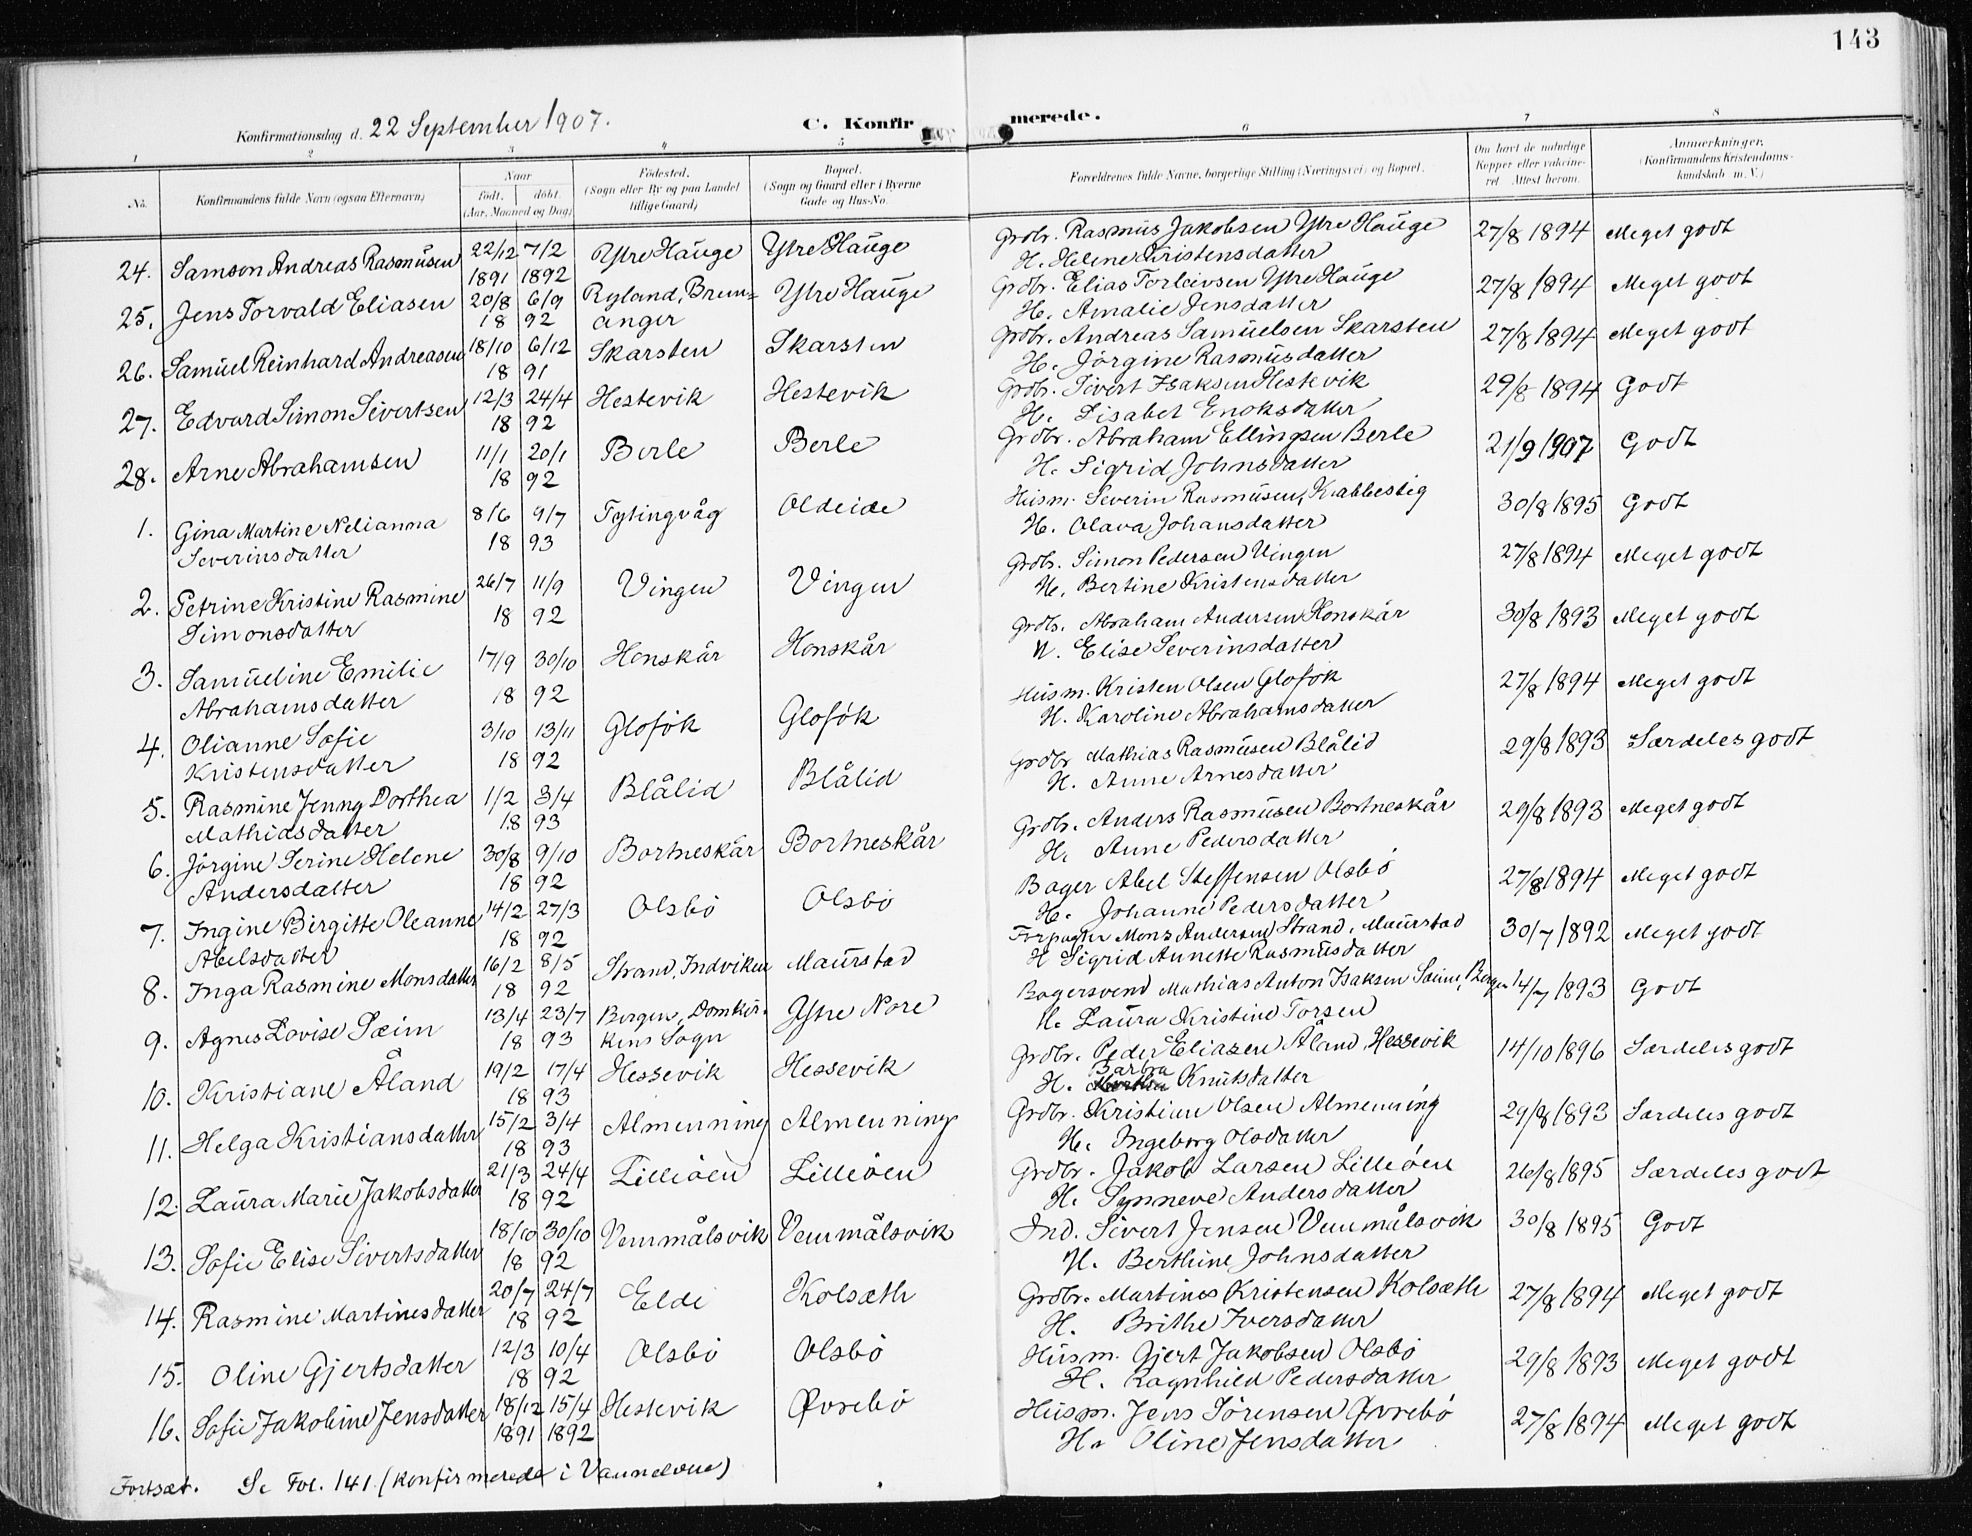 143
Konfirmationsdag d. 22 September 1907. C. Konfirmerede.
1 2 3 4 5 6 7 8
No. Konfirmandens fulde Navn (ogsaa Efternavn) Naar født. døbt. (Aar, Maaned og Dag) Fødested. (Sogn eller By og paa Landet tillige Gaard) Bopæl. (Sogn og Gaard eller i Byerne Gade og Hus-No. Forældrenes fulde Navne, borgerlige Stilling (Næringsvei) og Bopæl. Om havt de naturlige Kopper eller vaccineret. Attest herom. Anmerkninger. (Konfirmandens Kristendomskundskab m. V.)
24. Samson Andreas Rasmüsen 22/12 7/2 Ytre Haüge Ytre Haüge Grdbr. Rasmüs Jakobsen Ytre Haüge 27/8 1894 Meget godt
1891 1892 H. Helene Kristensdatter
25. Jens Torvald Eliasen 20/8 6/9 Ryland, Brem= Ytre Haüge Grdbr. Elias Torleivsen Ytre Haüge 27/8 1894 Meget godt
18 92 anger H. Amalie Jensdatter
26. Samüel Reinhard Andreasen 18/10 6/12 Skarsten Skarsten Grdbr. Andreas Samüelsen Skarsten 27/8 1894 Meget godt
18 91 H. Jörgine Rasmüsdatter
27. Edvard Simon Sivertsen 12/3 24/4 Hestevik Hestevik Grdbr. Sivert Isaksen Hestevik 29/8 1894 Godt
18 92 H. Lisabet Enoksdatter
28. Arne Abrahamsen 11/1 20/1 Berle Berle Grdbr. Abraham Ellingsen Berle 21/9 1907 Godt
18 92 H. Sigrid Johnsdatter
1. Gina Martine Nelianna 8/6 9/7 Tytingvåg Oldeide Hüsm. Severin Rasmüsen, Krabbestig 30/8 1895 Godt
Severinsdatter 18 93 H. Olava Johansdatter
2. Petrine Kristine Rasmine 26/7 11/9 Vingen Vingen Grdbr. Simon Pedersen Vingen 27/8 1894 Meget godt
Simonsdatter 18 92 H. Bertine Kristensdatter
3. Samüeline Emilie 17/9 30/10 Honskår Honskår Grdbr. Abraham Andersen Honskår 30/8 1893 Meget godt
Abrahamsdatter 18 92 H. Elise Severinsdatter
4. Olianne Sofie 3/10 13/11 Glofök Glofök Hüsm. Kristen Olsen Glofök 27/8 1894 Meget godt
Kristensdatter 18 92 H. Karoline Abrahamsdatter
5. Rasmine Jenny Dorthea 1/2 3/4 Blålid Blålid Grdbr. Mathias Rasmüsen Blålid 29/8 1893 Særdeles godt
Mathiasdatter 18 93 H. Anne Arnesdatter
6. Jörgine Serine Helene 30/8 9/10 Bortneskår Bortneskår Grdbr. Anders Rasmüsen Bortneskår 29/8 1893 Meget godt
Andersdatter 18 92 H. Anne Pedersdatter
7. Ingine Birgitte Oleanne 14/2 27/3 Olsbö Olsbö Bager Abel Steffensen Olsbö 27/8 1894 Meget godt
Abelsdatter 18 92 H. Johanne Pedersdatter
8. Inga Rasmine Monsdatter 16/2 8/5 Strand, Indviken Maürstad Forpagter Mons Andersen Strand, Maürstad 30/7 1892 Meget godt
18 92 H Sigrid Annette Rasmüsdatter
9. Agnes Lovise Sæim 13/4 23/7 Bergen, Domkir- Ytre Nore Bagersvend Mathias Anton Isaksen Sæim, Bergen 14/7 1893 Godt
18 93 kens Sogn H. Laüra Kristine Torsen
10. Kristiane Åland 19/2 17/4 Hessevik Hessevik Grdbr. Peder Eliasen Åland, Hessevik 14/10 1896 Særdeles godt
18 93 H. Barbra Knütsdatter
11. Helga Kristiansdatter 15/2 3/4 Almenning Almenning Grdbr. Kristian Olsen Almenning 29/8 1893 Særdeles godt
18 93 H. Ingeborg Olsdatter
12. Laüra Marie Jakobsdatter 21/3 24/4 Lilleöen Lilleöen Grdbr. Jakob Larsen Lilleöen 26/8 1895 Særdeles godt
18 92 H. Synneve Andersdatter
13. Sofie Elise Sivertsdatter 18/10 30/10 Vemmålsvik Vemmålsvik Ind. Sivert Jensen Vemmålsvik 30/8 1895 Godt
18 92 H. Berthine Johnsdatter
14. Rasmine Martinesdatter 20/7 24/7 Elde Kolsæth Grdbr. Martines Kristensen Kolsæth 27/8 1894 Meget godt
18 92 H. Brithe Iversdatter
15. Oline Gjertsdatter 12/3 10/4 Olsbö Olsbö Hüsm. Gjert Jakobsen Olsbö 29/8 1893 Meget godt
18 92 H. Ragnhild Pedersdatter
16. Sofie Jakobine Jensdatter 18/12 15/4 Hestevik Øvrebö Hüsm. Jens Sörensen Øvrebö 27/8 1894 Meget godt
1891 1892 H. Oline Jensdatter
Fortsæt. Se Fol. 141 (konfirmerede i Vannelven)